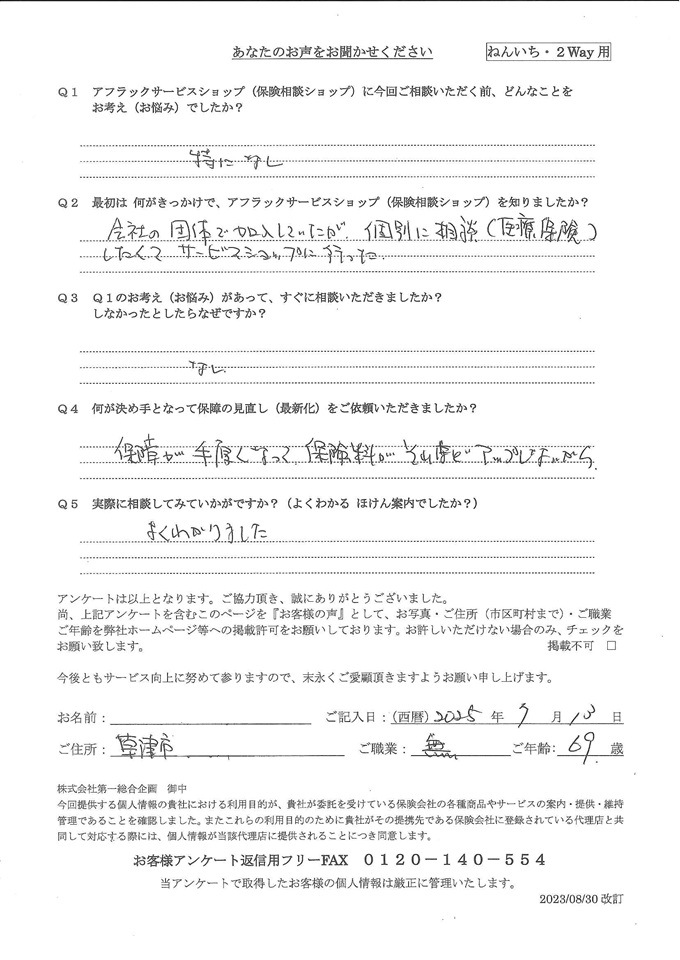 あなたのお声をお聞かせください
ねんいち・２Way 用
Ｑ１ アフラックサービスショップ（保険相談ショップ）に今回ご相談いただく前、どんなことを
お考え（お悩み）でしたか？
特になし
Ｑ２ 最初は 何がきっかけで、アフラックサービスショップ（保険相談ショップ）を知りましたか？
会社の団体で加入していたが、個別に相談（医療保険）
したくて サービスショップに行った。
Ｑ３ Ｑ１のお考え（お悩み）があって、すぐに相談いただきましたか？
しなかったとしたらなぜですか？
なし
Ｑ４ 何が決め手となって保障の見直し（最新化）をご依頼いただきましたか？
保障が手厚くなって、保険料がそれ程どアップしないから。
Ｑ５ 実際に相談してみていかがですか？（よくわかる ほけん案内でしたか？）
よくわかりました
アンケートは以上となります。ご協力頂き、誠にありがとうございました。
尚、上記アンケートを含むこのページを『お客様の声』として、お写真・ご住所（市区町村まで）・ご職業
ご年齢を弊社ホームページ等への掲載許可をお願いしております。お許しいただけない場合のみ、チェックを
お願い致します。 掲載不可 □
今後ともサービス向上に努めて参りますので、末永くご愛顧頂きますようお願い申し上げます。
お名前： ご記入日：（西暦）2025 年 9 月 13 日
ご住所： 草津市 ご職業： 無 ご年齢： 69 歳
株式会社第一総合企画 御中
今回提供する個人情報の貴社における利用目的が、貴社が委託を受けている保険会社の各種商品やサービスの案内・提供・維持
管理であることを確認しました。またこれらの利用目的のために貴社がその提携先である保険会社に登録されている代理店と共
同して対応する際には、個人情報が当該代理店に提供されることにつき同意します。
お客様アンケート返信用フリーFAX ０１２０－１４０－５５４
当アンケートで取得したお客様の個人情報は厳正に管理いたします。
2023/08/30 改訂